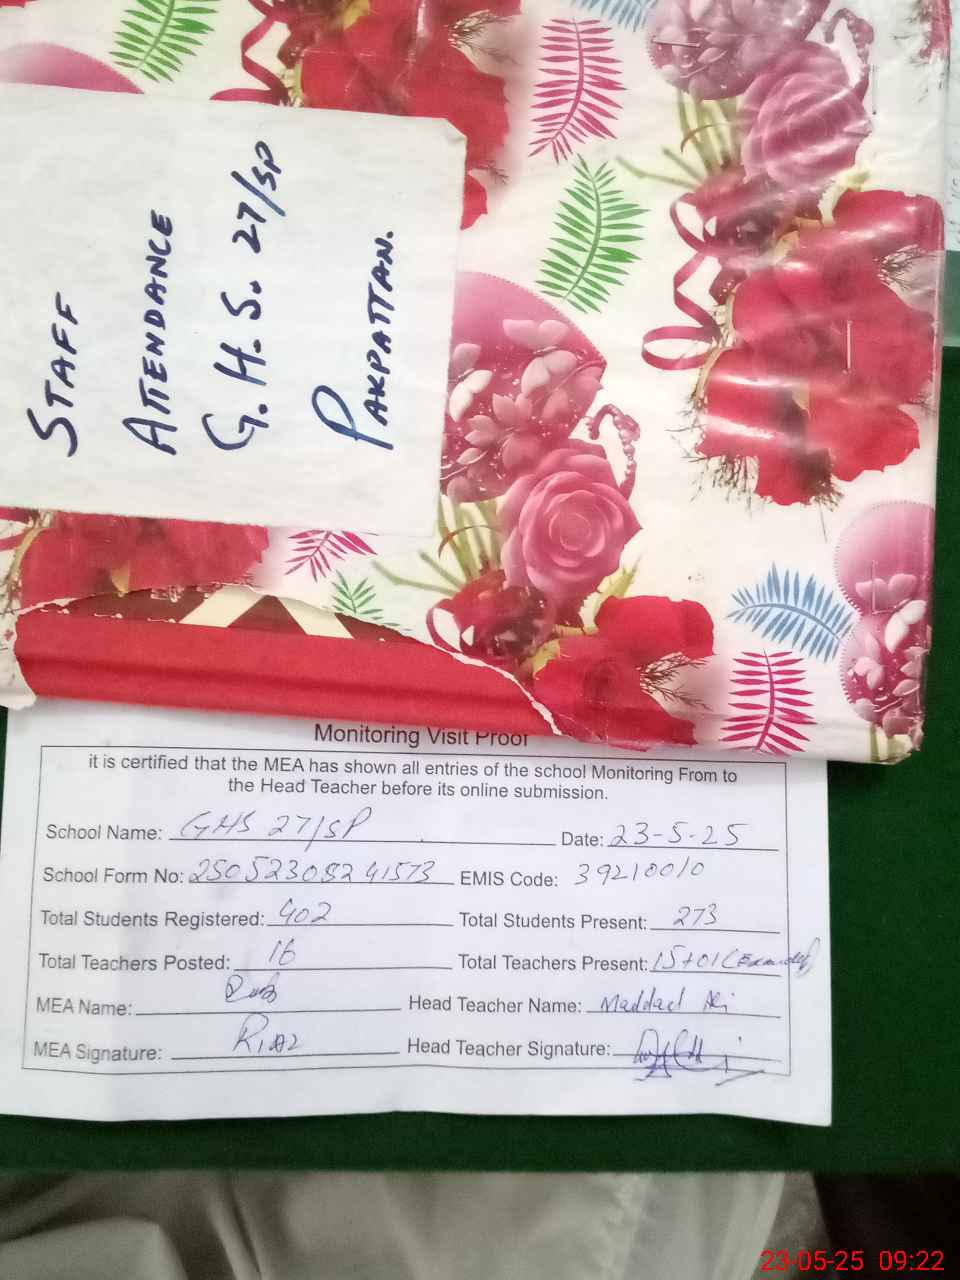 STAFF
ATTENDANCE
G.H.S. 27/SP
PAKPATTAN.
Monitoring Visit Proof
it is certified that the MEA has shown all entries of the school Monitoring From to
the Head Teacher before its online submission.
School Name: GHS 27/SP Date: 23-5-25
School Form No: 25052308241573 EMIS Code: 39210010
Total Students Registered: 402 Total Students Present: 273
Total Teachers Posted: 16 Total Teachers Present: 15+01
MEA Name: Head Teacher Name: Maddad Ali
MEA Signature: Riaz Head Teacher Signature:
23-05-25 09:22